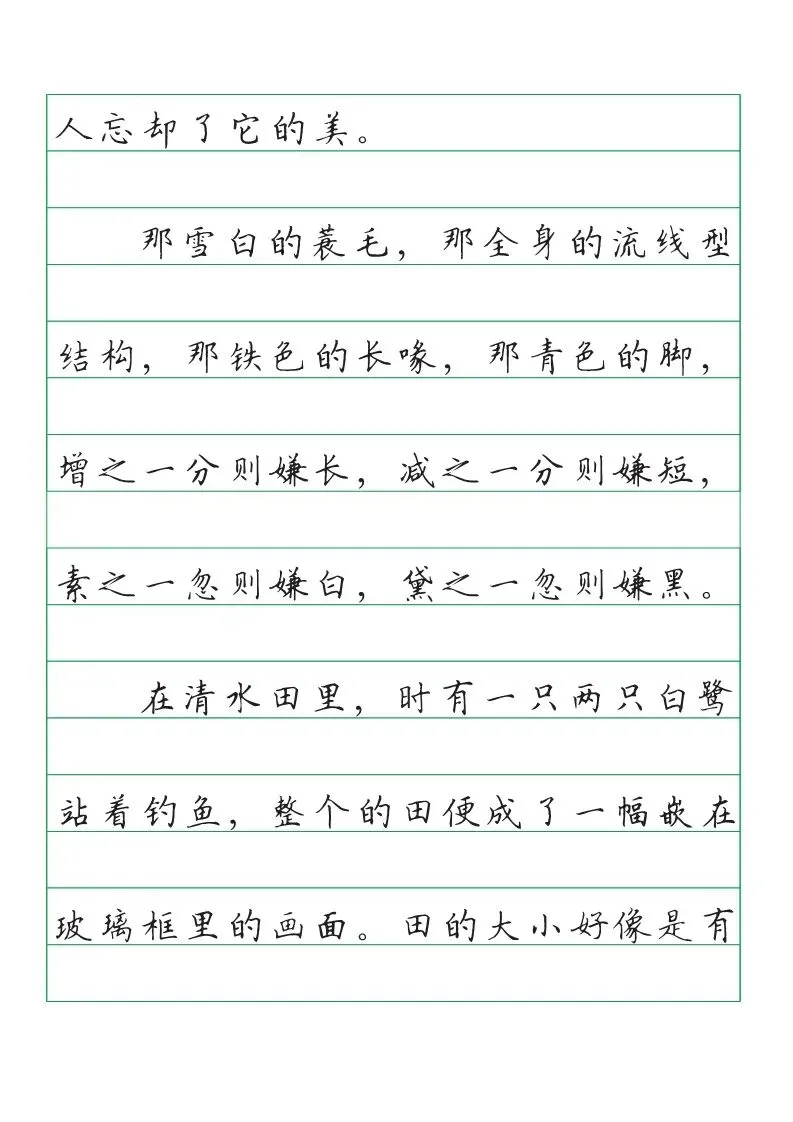 人忘却了它的美。
那雪白的蓑毛，那全身的流线型
结构，那铁色的长喙，那青色的脚，
增之一分则嫌长，减之一分则嫌短，
素之一忽则嫌白，黛之一忽则嫌黑。
在清水田里，时有一只两只白鹭
站着钓鱼，整个的田便成了一幅嵌在
玻璃框里的画面。田的大小好像是有